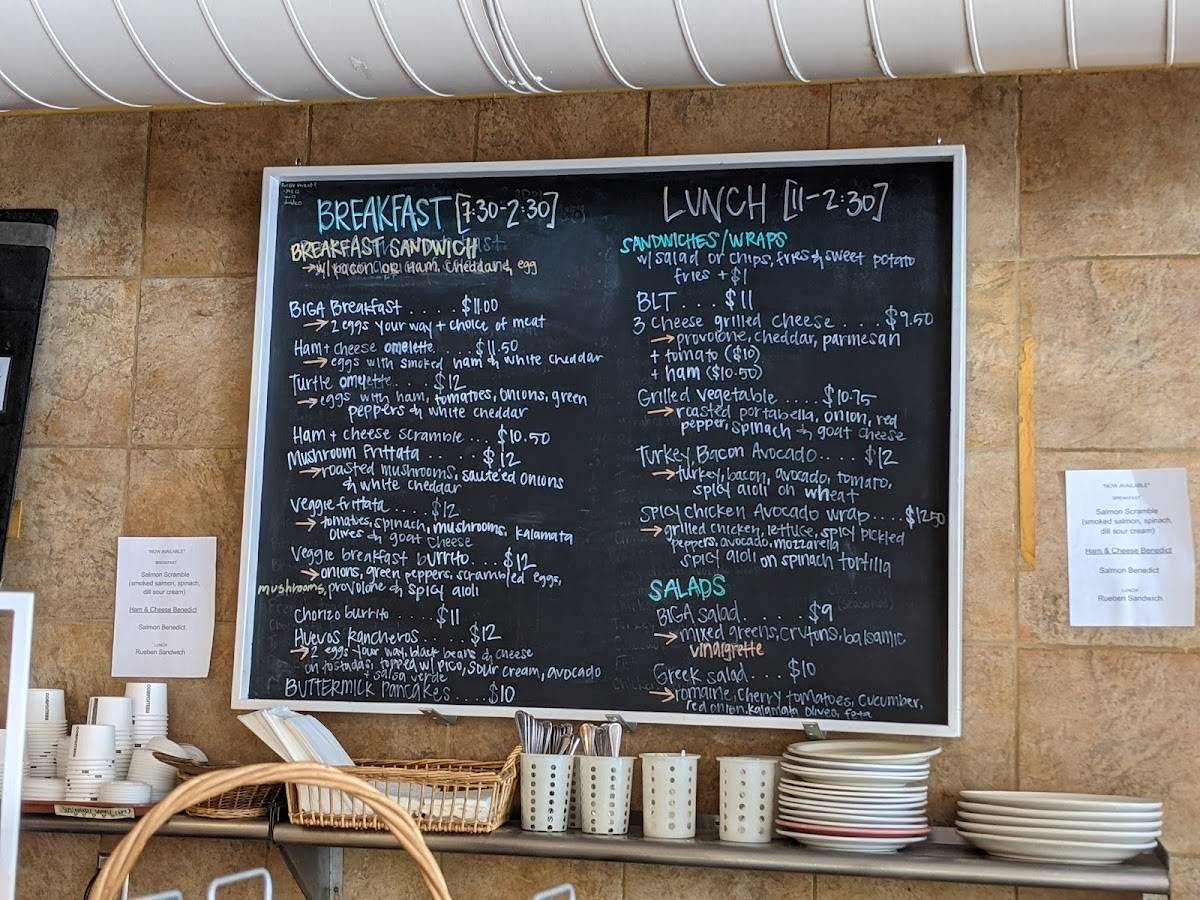 BREAKFAST [7:30-2:30]
BREAKFAST SANDWICH
→ w/ bacon or ham, cheddar & egg
BIGA Breakfast . . . . . $11.00
→ 2 eggs your way + choice of meat
Ham + cheese omelette . . . . $11.50
→ eggs with smoked ham & white cheddar
Turtle omelette . . . $12
→ eggs with ham, tomatoes, onions, green
peppers & white cheddar
Ham + cheese scramble . . . $10.50
Mushroom Frittata . . . . . $12
→ roasted mushrooms, sauteed onions
& white cheddar
Veggie frittata . . . . $12
→ tomatoes, spinach, mushrooms, kalamata
olives & goat cheese
Veggie breakfast burrito . . . $12
→ onions, green peppers, scrambled eggs,
mushrooms, provolone & spicy aioli
Chorizo burrito . . . . $11
Huevos Rancheros . . . . $12
→ 2 eggs your way, black beans & cheese
on tostadas, topped w/ pico, sour cream, avocado
+ salsa verde
BUTTERMILK PANCAKES . . . $10
LUNCH [11-2:30]
SANDWICHES/WRAPS
w/ salad or chips, fries & sweet potato
fries + $1
BLT . . . $11
3 cheese grilled cheese . . . . $9.50
→ provolone, cheddar, parmesan
+ tomato ($10)
+ ham ($10.50)
Grilled vegetable . . . . $10.75
→ roasted portabella, onion, red
pepper, spinach & goat cheese
Turkey Bacon Avocado . . . . $12
→ turkey, bacon, avocado, tomato,
spicy aioli on wheat
Spicy chicken Avocado wrap . . . . $12.50
→ grilled chicken, lettuce, spicy pickled
peppers, avocado, mozzarella
spicy aioli on spinach tortilla
SALADS
BIGA salad . . . . . $9
→ mixed greens, crutons, balsamic
vinaigrette
Greek salad . . . $10
→ romaine, cherry tomatoes, cucumber,
red onion, kalamata olives, feta
"NOW AVAILABLE"
BREAKFAST
Salmon Scramble
(smoked salmon, spinach,
dill sour cream)
Ham & Cheese Benedict
Salmon Benedict
LUNCH
Rueben Sandwich
"NOW AVAILABLE"
BREAKFAST
Salmon Scramble
(smoked salmon, spinach,
dill sour cream)
Ham & Cheese Benedict
Salmon Benedict
LUNCH
Rueben Sandwich